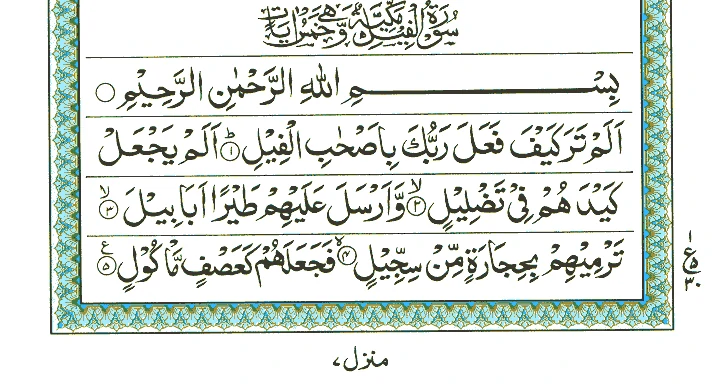 سُوْرَةُ الْفِيْلِ مَكِّيَّةٌ وَّهِىَ خَمْسُ اٰيَاتٍ
بِسْمِ اللّٰهِ الرَّحْمٰنِ الرَّحِيْمِ ○
اَلَمْ تَرَ كَيْفَ فَعَلَ رَبُّكَ بِاَصْحٰبِ الْفِيْلِ ؕ﴿۱﴾ اَلَمْ يَجْعَلْ
كَيْدَهُمْ فِىْ تَضْلِيْلٍ ۙ﴿۲﴾ وَّاَرْسَلَ عَلَيْهِمْ طَيْرًا اَبَابِيْلَ ۙ﴿۳﴾
تَرْمِيْهِمْ بِحِجَارَةٍ مِّنْ سِجِّيْلٍ ۪ۙ﴿۴﴾ فَجَعَلَهُمْ كَعَصْفٍ مَّاْكُوْلٍ ﴿۵﴾ ع
۱
ع ۵
۳۰
منزل،